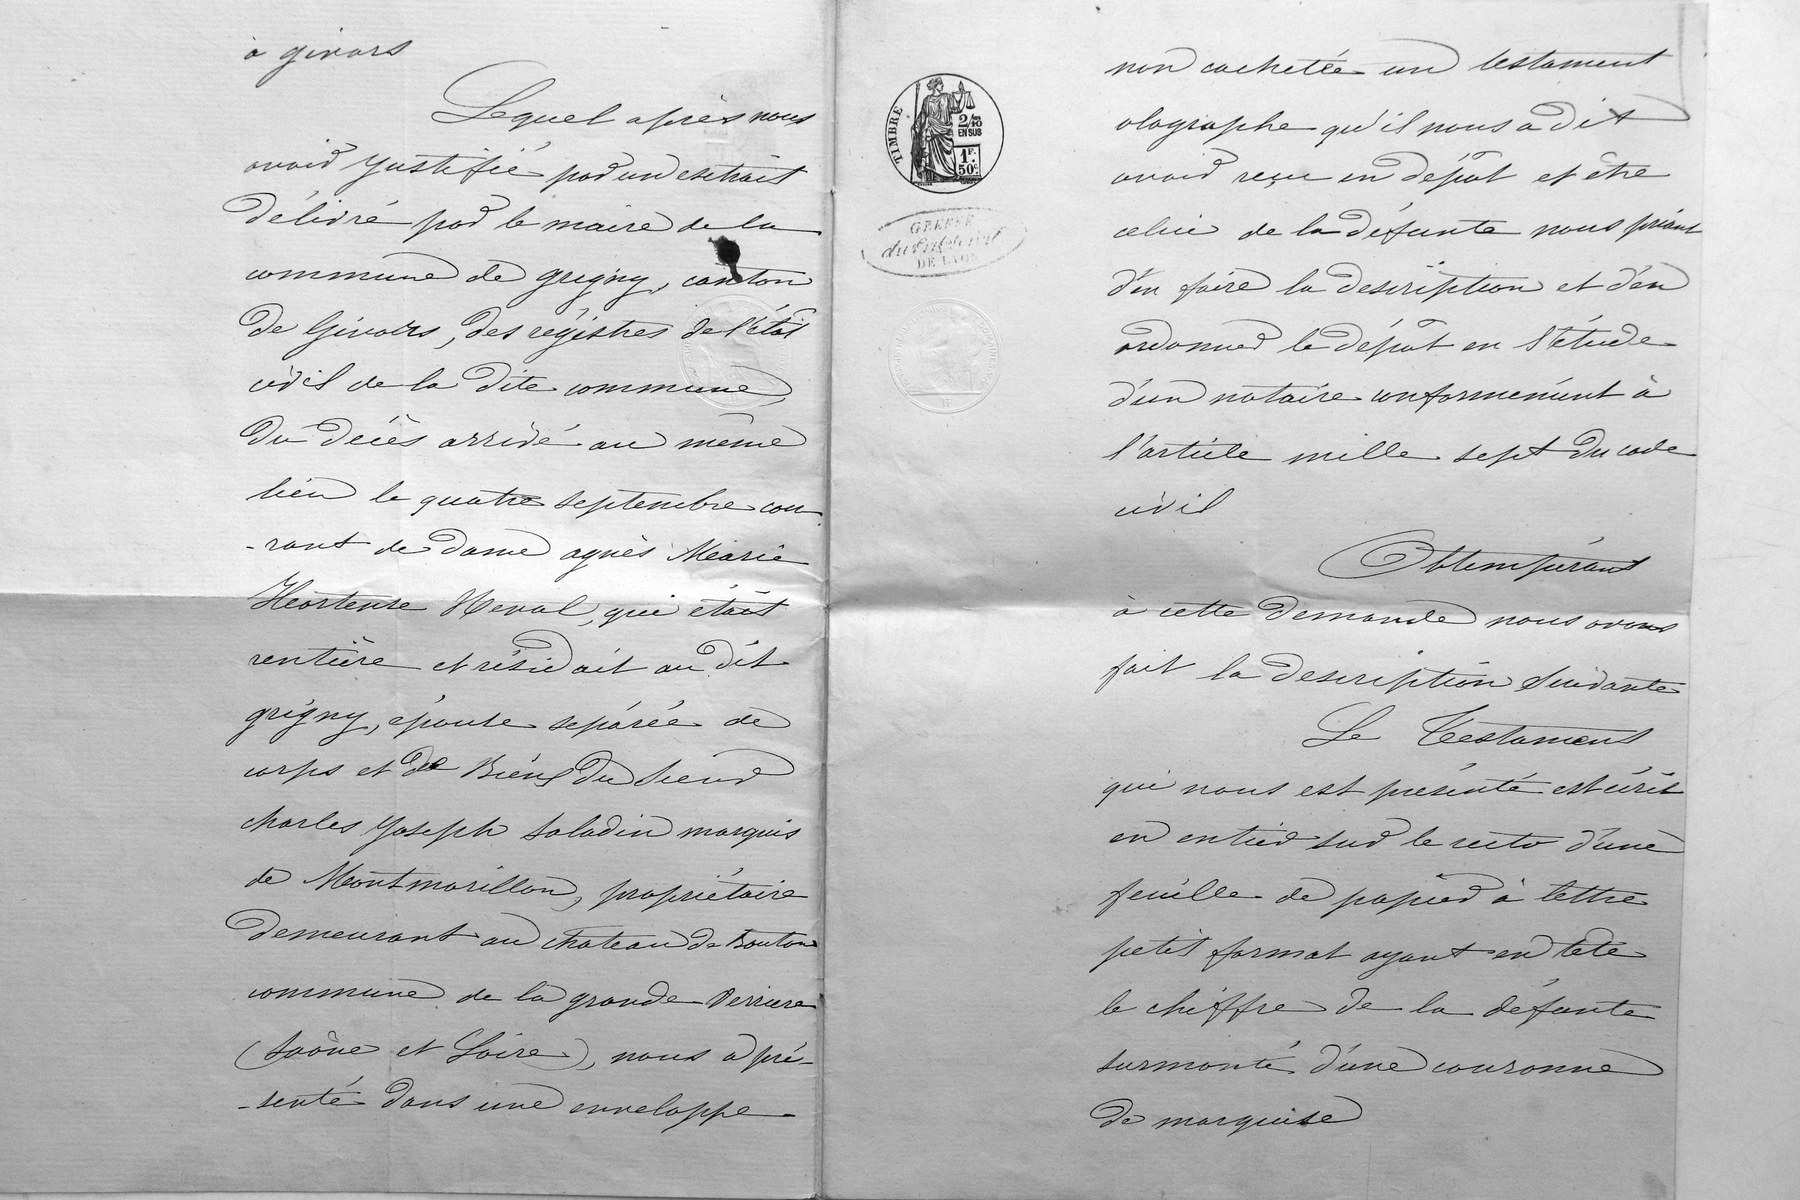 à givors
Lequel après nous
avoir justifié par un extrait
délivré par le maire de la
commune de grigny, canton
de Givors, des régistres de l'état
civil de la dite commune,
du décès arrivé au même
lieu le quatre septembre cou
-rant de dame agnès Marie
Hortense Neval, qui était
rentière et résidait au dit
grigny, épouse séparée de
corps et de Biens du sieur
charles Joseph Saladin marquis
de Montmorillon, propriétaire
demeurant au chateau de Bouton
commune de la grande Verrière
(Saône et Loire), nous a pré-
-senté dans une enveloppe
TIMBRE
2/10
EN SUS
1F.
50c
GREFFE
DE LYON
non cachetée un testament
olographe qu'il nous a dit
avoir reçu en dépôt et être
celui de la défunte nous priant
d'en faire la description et d'en
ordonner le dépôt en l'étude
d'un notaire conformément à
l'article mille sept du code
civil
Obtempérant
à cette demande nous avons
fait la description suivante
Le Testament
qui nous est présenté est écrit
en entier sur le recto d'une
feuille de papier à lettre
petit format ayant en tête
le chiffre de la défunte
surmonté d'une couronne
de marquise